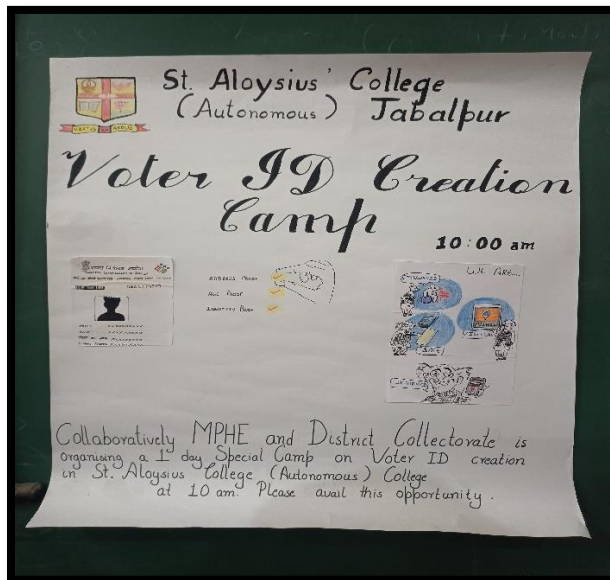 St. Aloysius' College
(Autonomous) Jabalpur
Voter ID Creation
Camp
10:00 am
Address Proof
Age Proof
Identity Proof
We Are...
Collaboratively MPHE and District Collectorate is
organising a 1 day Special Camp on Voter ID creation
in St. Aloysius College (Autonomous) College
at 10 am. Please avail this opportunity.